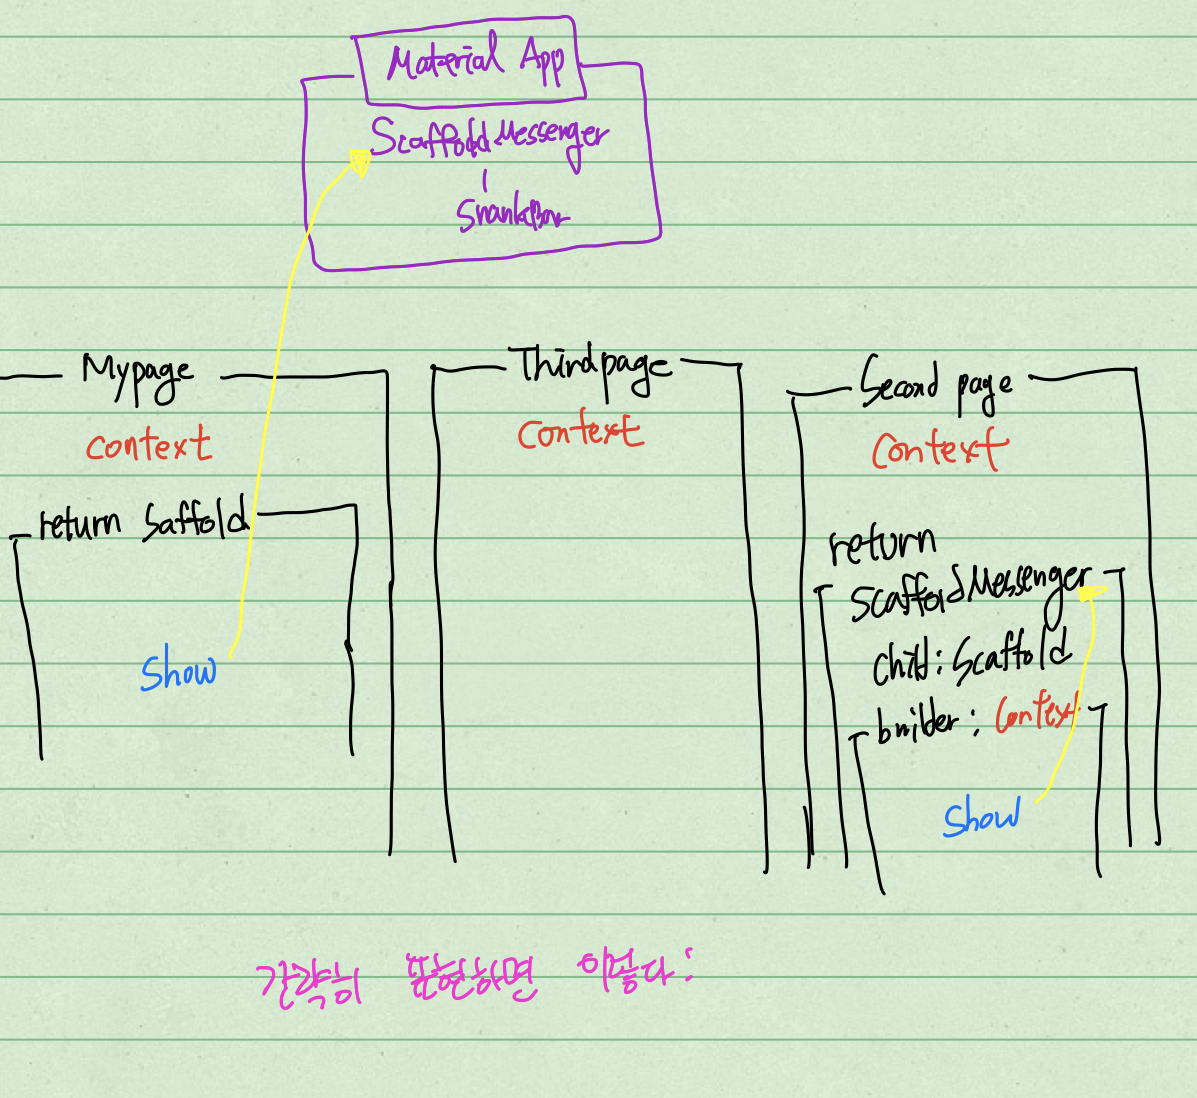 Material App
ScaffoldMessenger
SnankBar
Mypage
context
return Saffold
Show
Thirdpage
context
Second page
Context
return
ScaffoldMessenger
child: Scaffold
builder: Context
Show
간략히 표현하면 이렇다: